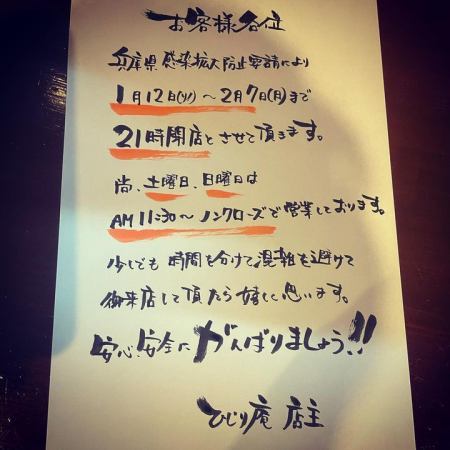 お客様各位
兵庫県感染拡大防止要請により
1月12日(火)～2月7日(月)まで
21時閉店とさせて頂きます。
尚、土曜日、日曜日は
AM11:30～ノンクローズで営業しております。
少しでも時間を分けて混雑を避けて
御来店して頂たら嬉しく思います。
安心、安全にがんばりましょう!!
ひじり庵 店主